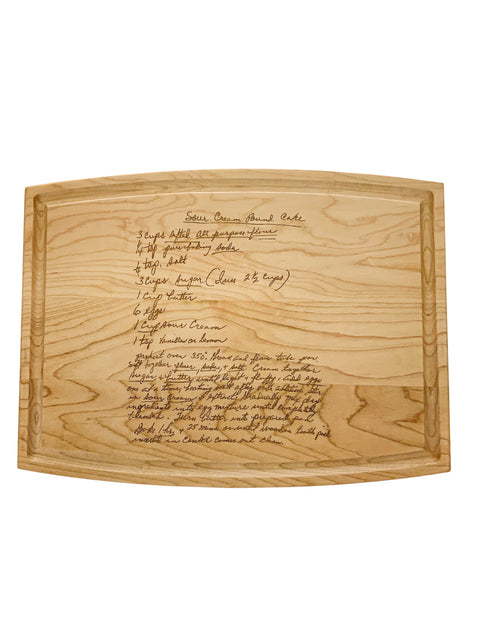 Sour Cream Pound Cake
3 cups sifted all purpose flour
1/4 tsp baking soda
tsp. salt
3 cups sugar (I use 2 1/2 cups)
1 cup butter
6 eggs
1 cup sour cream
1 tsp vanilla or lemon
preheat oven 350°. Grease and flour tube pan
sift together flour, soda, + salt. Cream together
sugar + butter until light + fluffy. Add eggs
one at a time, beating well after each addition. Stir
in sour cream. Gradually dry
ingredients into egg mixture until completely
blended. Turn batter into prepared pan
Bake 1 hr. + 25 wooden tooth pick
inserted in center comes out clean.